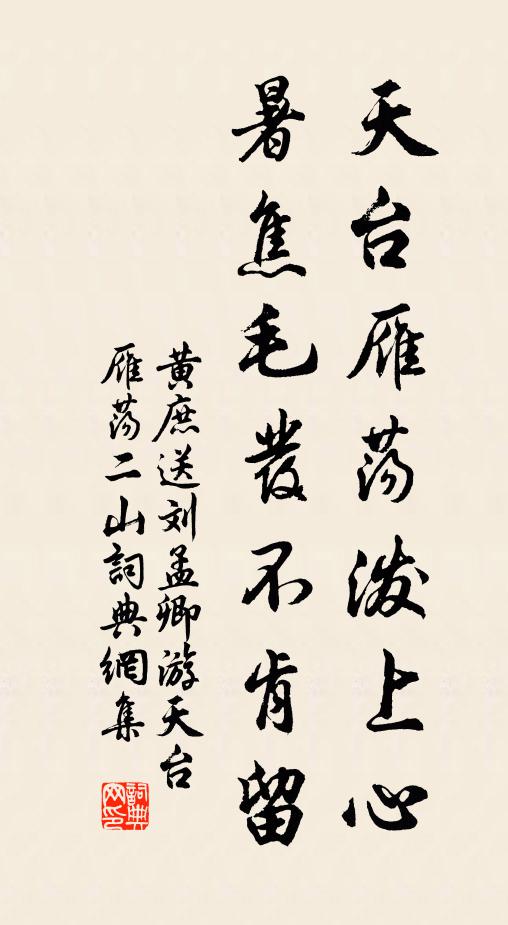 天台雁荡泼上心
暑焦毛發不肯留
黄庶送刘孟卿游天台
雁荡二山詞典網集
詞典网印